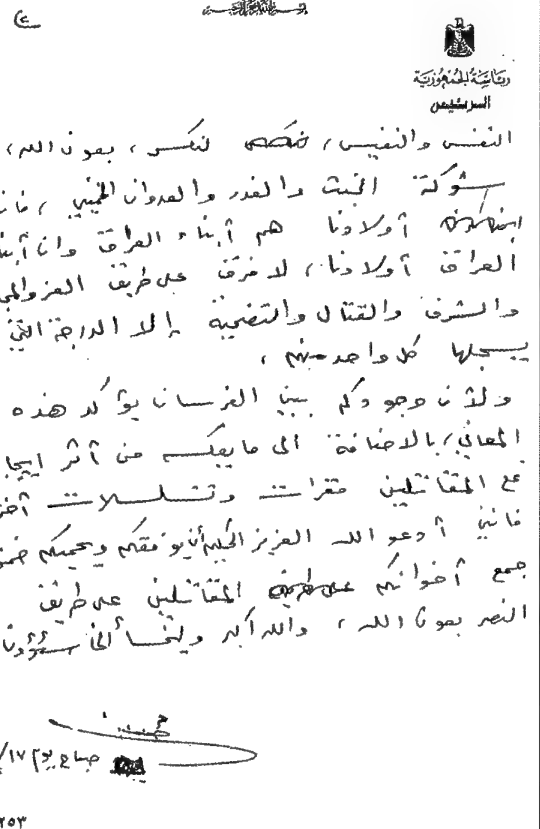 (٢
بسم الله الرحمن الرحيم
رئاسة الجمهورية
السرئيس
النفس والنفيس، لنكسر، بعون الله،
شوكة الخبث والغدر والعدوان الخميني، فان
أولادنا هم أبناء العراق وان أبنا
العراق أولادنا، لا فرق على طريق العز والمج
والشرف والقتال والتضحية إلا الدرجة التي
يسجلها كل واحد منهم،
ولأن وجودكم بين الفرسان يؤكد هذه
المعاني، بالاضافة الى ما يعكسه من أثر ايجا
مع المقاتلين مقرات وتشكيلات أخر
فانني أدعو الله العزيز الجليل أن يوفقكم ويحميكم ضمن
جمع أخوانكم المقاتلين على طريق
النصر بعون الله، والله أكبر وليخسأ الخاسئون
صباح يوم ١٧/
٢٥٣